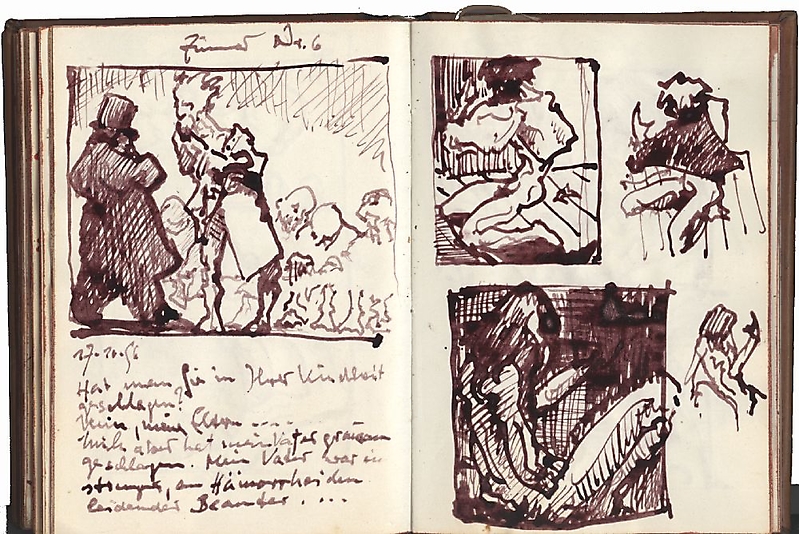 Zimmer Nr. 6
17.10.56
Hat man Sie in Ihrer Kindheit
geschlagen?
Nein, meine Eltern ....
Mich aber hat mein Vater grausam
geschlagen. Mein Vater war ein
strenger, an Hämorrhoiden
leidender Beamter ...